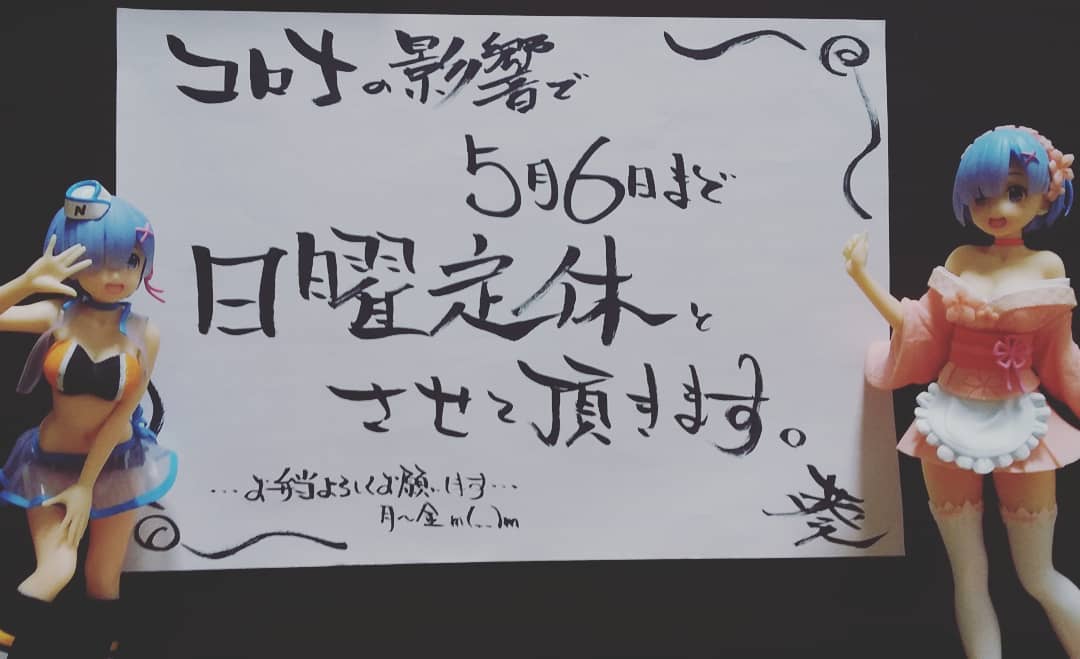 コロナの影響で
5月6日まで
日曜定休と
させて頂きます。
…お弁当よろしくお願いします…
月〜金 m(__)m
N